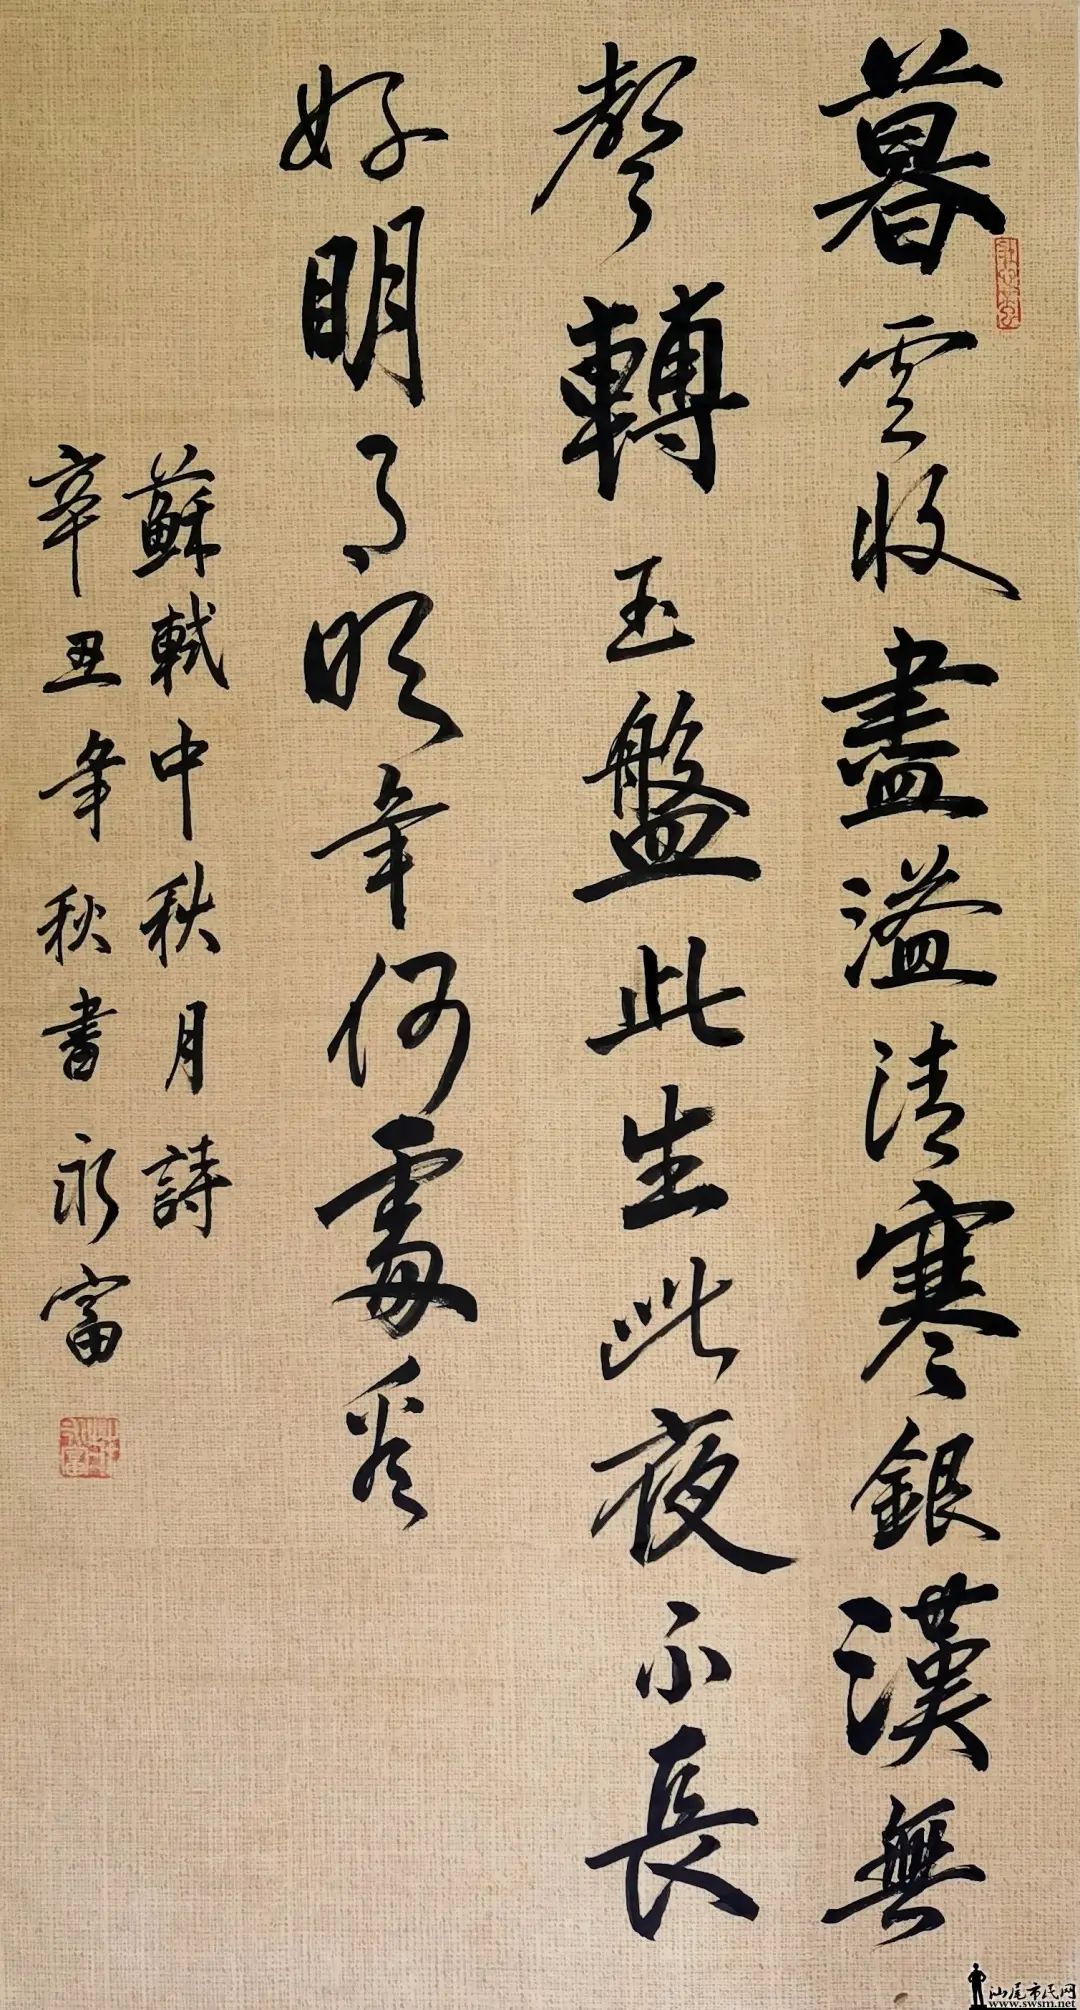 暮雲收盡溢清寒銀漢無
聲轉玉盤此生此夜不長
好明月明年何處看
蘇軾中秋月詩
辛丑年秋書永富
汕尾市民网
www.swsm.net